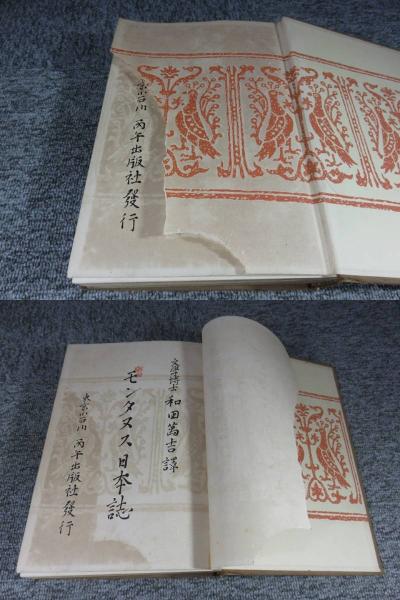 東京小石川 丙午出版社發行
文學博士 和田萬吉譯
モンタヌス日本誌
東京小石川 丙午出版社發行